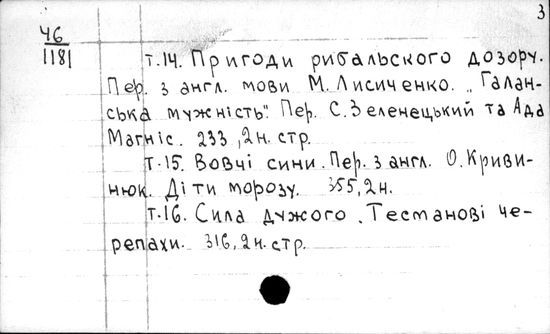 3
Ч6
1181
т.14. Пригоди рибальського дозору.
Пер. з англ. мови М. Лисиченко. „Галан-
ська мужність". Пер. С. Зеленецький та Ада
Магніс. 233, 2 н. стр.
т.15. Вовчі сини. Пер. з англ. О. Криви-
нюк. Діти морозу. 355, 2 н.
т.16. Сила дужого. Тесманові че-
репахи. 316, 2 н. стр.